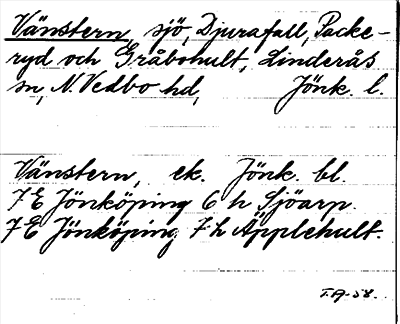 Vänstern, sjö, Djurafall, Packe-
ryd och Gråbohult, Linderås
sn, N. Vedbo hd, Jönk. l.
Vänstern, ek. Jönk. bl.
7 E Jönköping 6 h Sjöarp.
7 E Jönköping 7 h Äpplehult.
T.A-58.